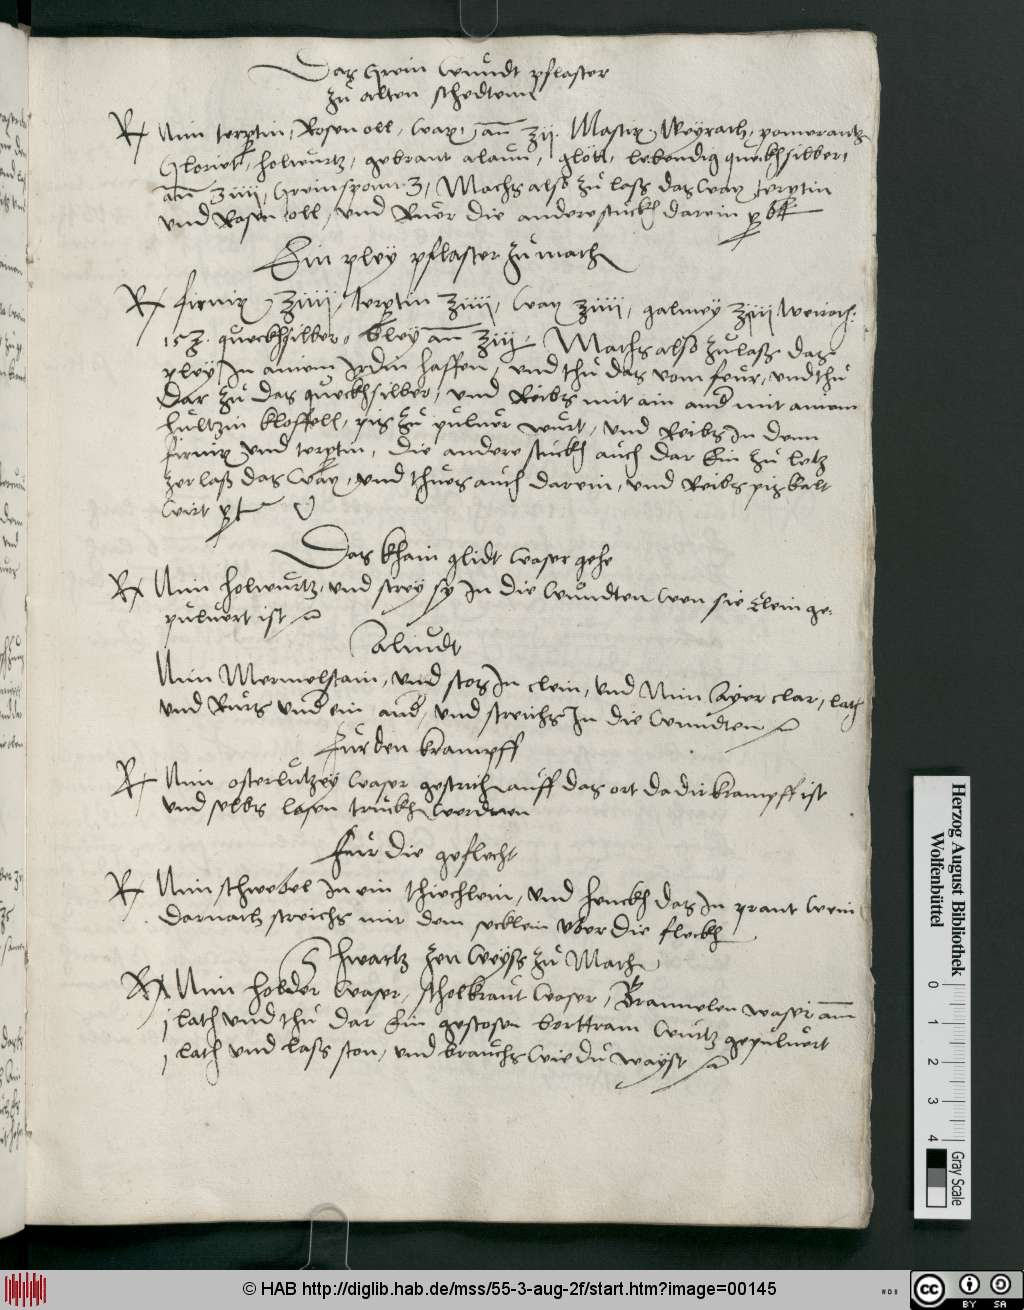 Das Grein wundt pflaster
zu alten schedtenn
Rx Nim terptin, Rosen oll, wax, an ʒij. Mastix, Weyrach, pomerantz
Gloriet, holwurtz, gebrant alaun, glött, lebendig queckhsilber,
an ʒiiij, Greinspann ʒ, Machs also zu lass das wax terptin
und Rosen oll, und Ruer die andere stuckh darein
Ein pley pflaster zu mach
Rx firnix ʒiiij, terptin ʒiiij, wax ʒiiij, galmey ʒiij Weiroch:
15 ʒ. queckhsilber, bley an ʒiij, Machs also zulass das
pley In ainem Irdin haffen, und thu das vom feur, und thu
dar zu das queckhsilber, und Reibs mit ain and mit ainem
hultzin kloffell, pis zu puluer wurt, und Reibs In denn
firnix und terptin, die andere stuckh auch dar Ein zu letz
zerlass das wax, und thues auch darein, und Reibs pis kalt
wirt
Das khain glidt waser gehe
Rx Nim holwurtz, und strey sy In die wundten wen sie clein ge-
puluert ist
aliudt
Nim Mermelstain, und stos In clein, und Nim ayer clar, lath
und Rurs und ein and, und streichs In die wundten
Fur den krampff
Rx Nim osterlutzey waser gestrich auff das ort da dir krampff ist
und selbs lasen truckh werdnen
Fur die geflecht
Rx Nim schwebel In ein thiechlein, und henckh das In prant wein
darnach streichs mit dem secklein uber die fleckh
Schwartz zen weyss zu Mach
Rx Nim holder waser, scholkraut waser, Bramelen waser an
j lath und thu dar Ein gestosen berttram wurtz gepuluert
j lath und lass sten, und brauchs wie du wayst
Herzog August Bibliothek
Wolfenbüttel
0 1 2 3 4
Gray Scale
© HAB http://diglib.hab.de/mss/55-3-aug-2f/start.htm?image=00145
cc BY SA